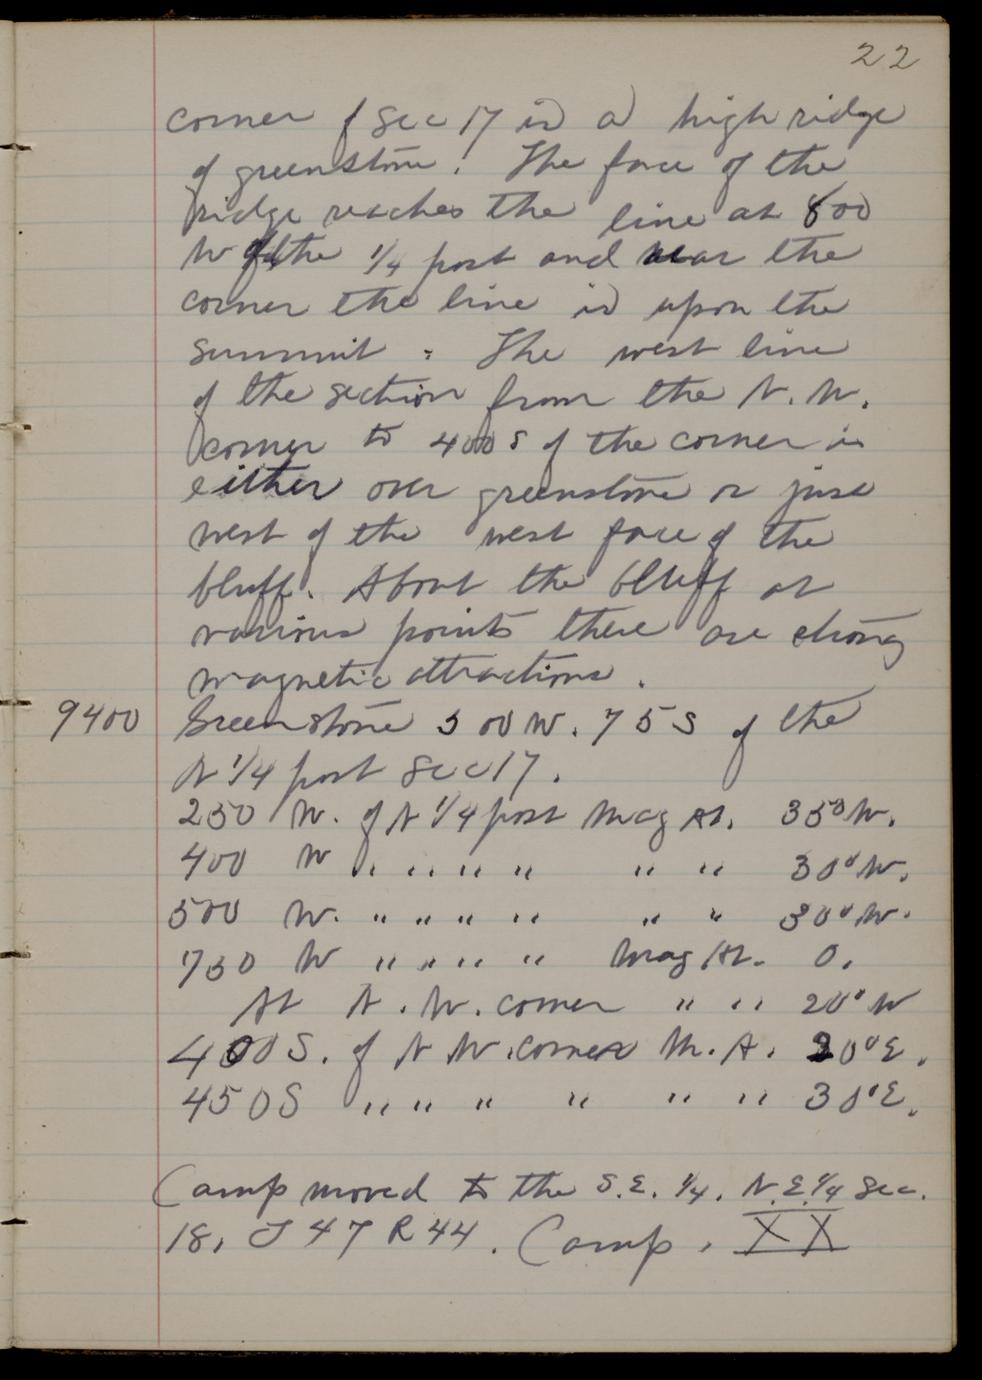 22
corner of Sec 17 is a high ridge
of greenstone. The face of the
ridge reaches the line at 800
W of the 1/4 post and near the
corner the line is upon the
summit. The west line
of the section from the N.W.
corner to 400 S of the corner is
either over greenstone or just
west of the west face of the
bluff. About the bluff at
various points there are strong
magnetic attractions.
9400 Greenstone 500 W. 75 S of the
N 1/4 post Sec 17.
250 W. of N 1/4 post Mag At. 35° W.
400 W " " " " " " 30° W.
500 W. " " " " " " 30° W.
750 W " " " " Mag At. 0.
At N.W. corner " " 20° W
400 S. of N W. corner M. A. 20° E.
450 S " " " " " " 30° E.
Camp moved to the S.E. 1/4. N.E. 1/4 Sec.
18, T 47 R 44. Camp. XX